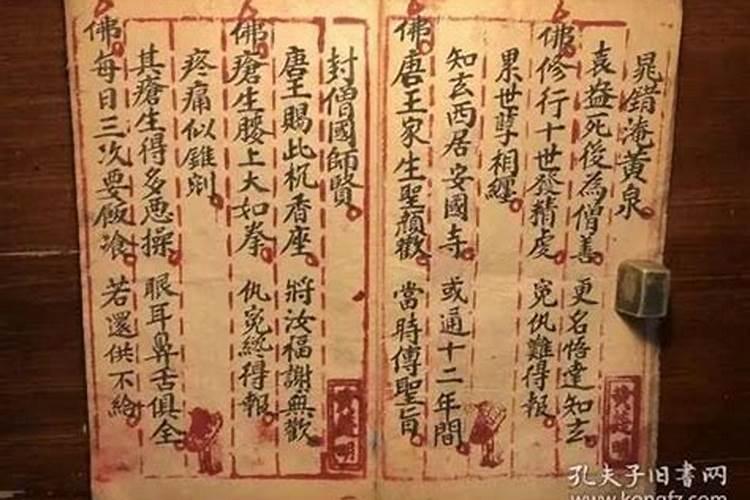 晁錯淹黃泉
袁盎死後為僧善 更名悟達知玄
佛修行十世發精虔 冤仇難得報
累世孽相纏
知玄西居安國寺 或通十二年間
佛唐王家生聖顏歡 當時傳聖旨
封僧國師賢
唐王賜此杌香座 將汝福謝無歡
佛瘡生腰上大如拳 仇冤終得報
疼痛似錐剜
其瘡生得多悪操 眼耳鼻舌俱全
佛每日三次要飯飡 若還供不給
孔夫子旧书网